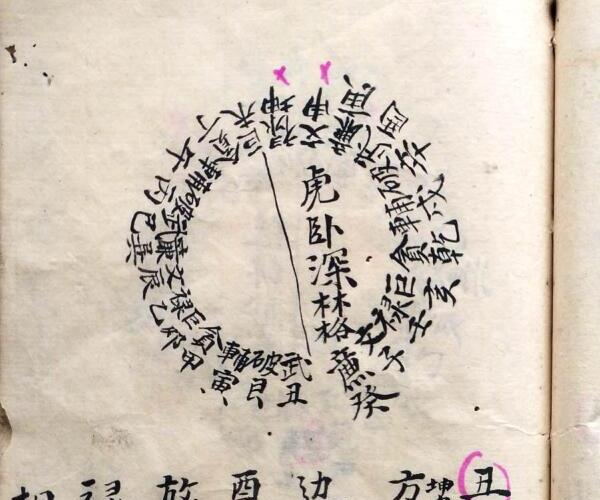 坤申庚酉辛戌乾亥壬子癸丑艮寅甲卯乙辰巽巳丙午丁未
禄文廉武破輔貪巨禄文廉武破輔貪巨禄文廉武破輔貪巨
虎卧深林格
丑
坤
方
边
酉
放